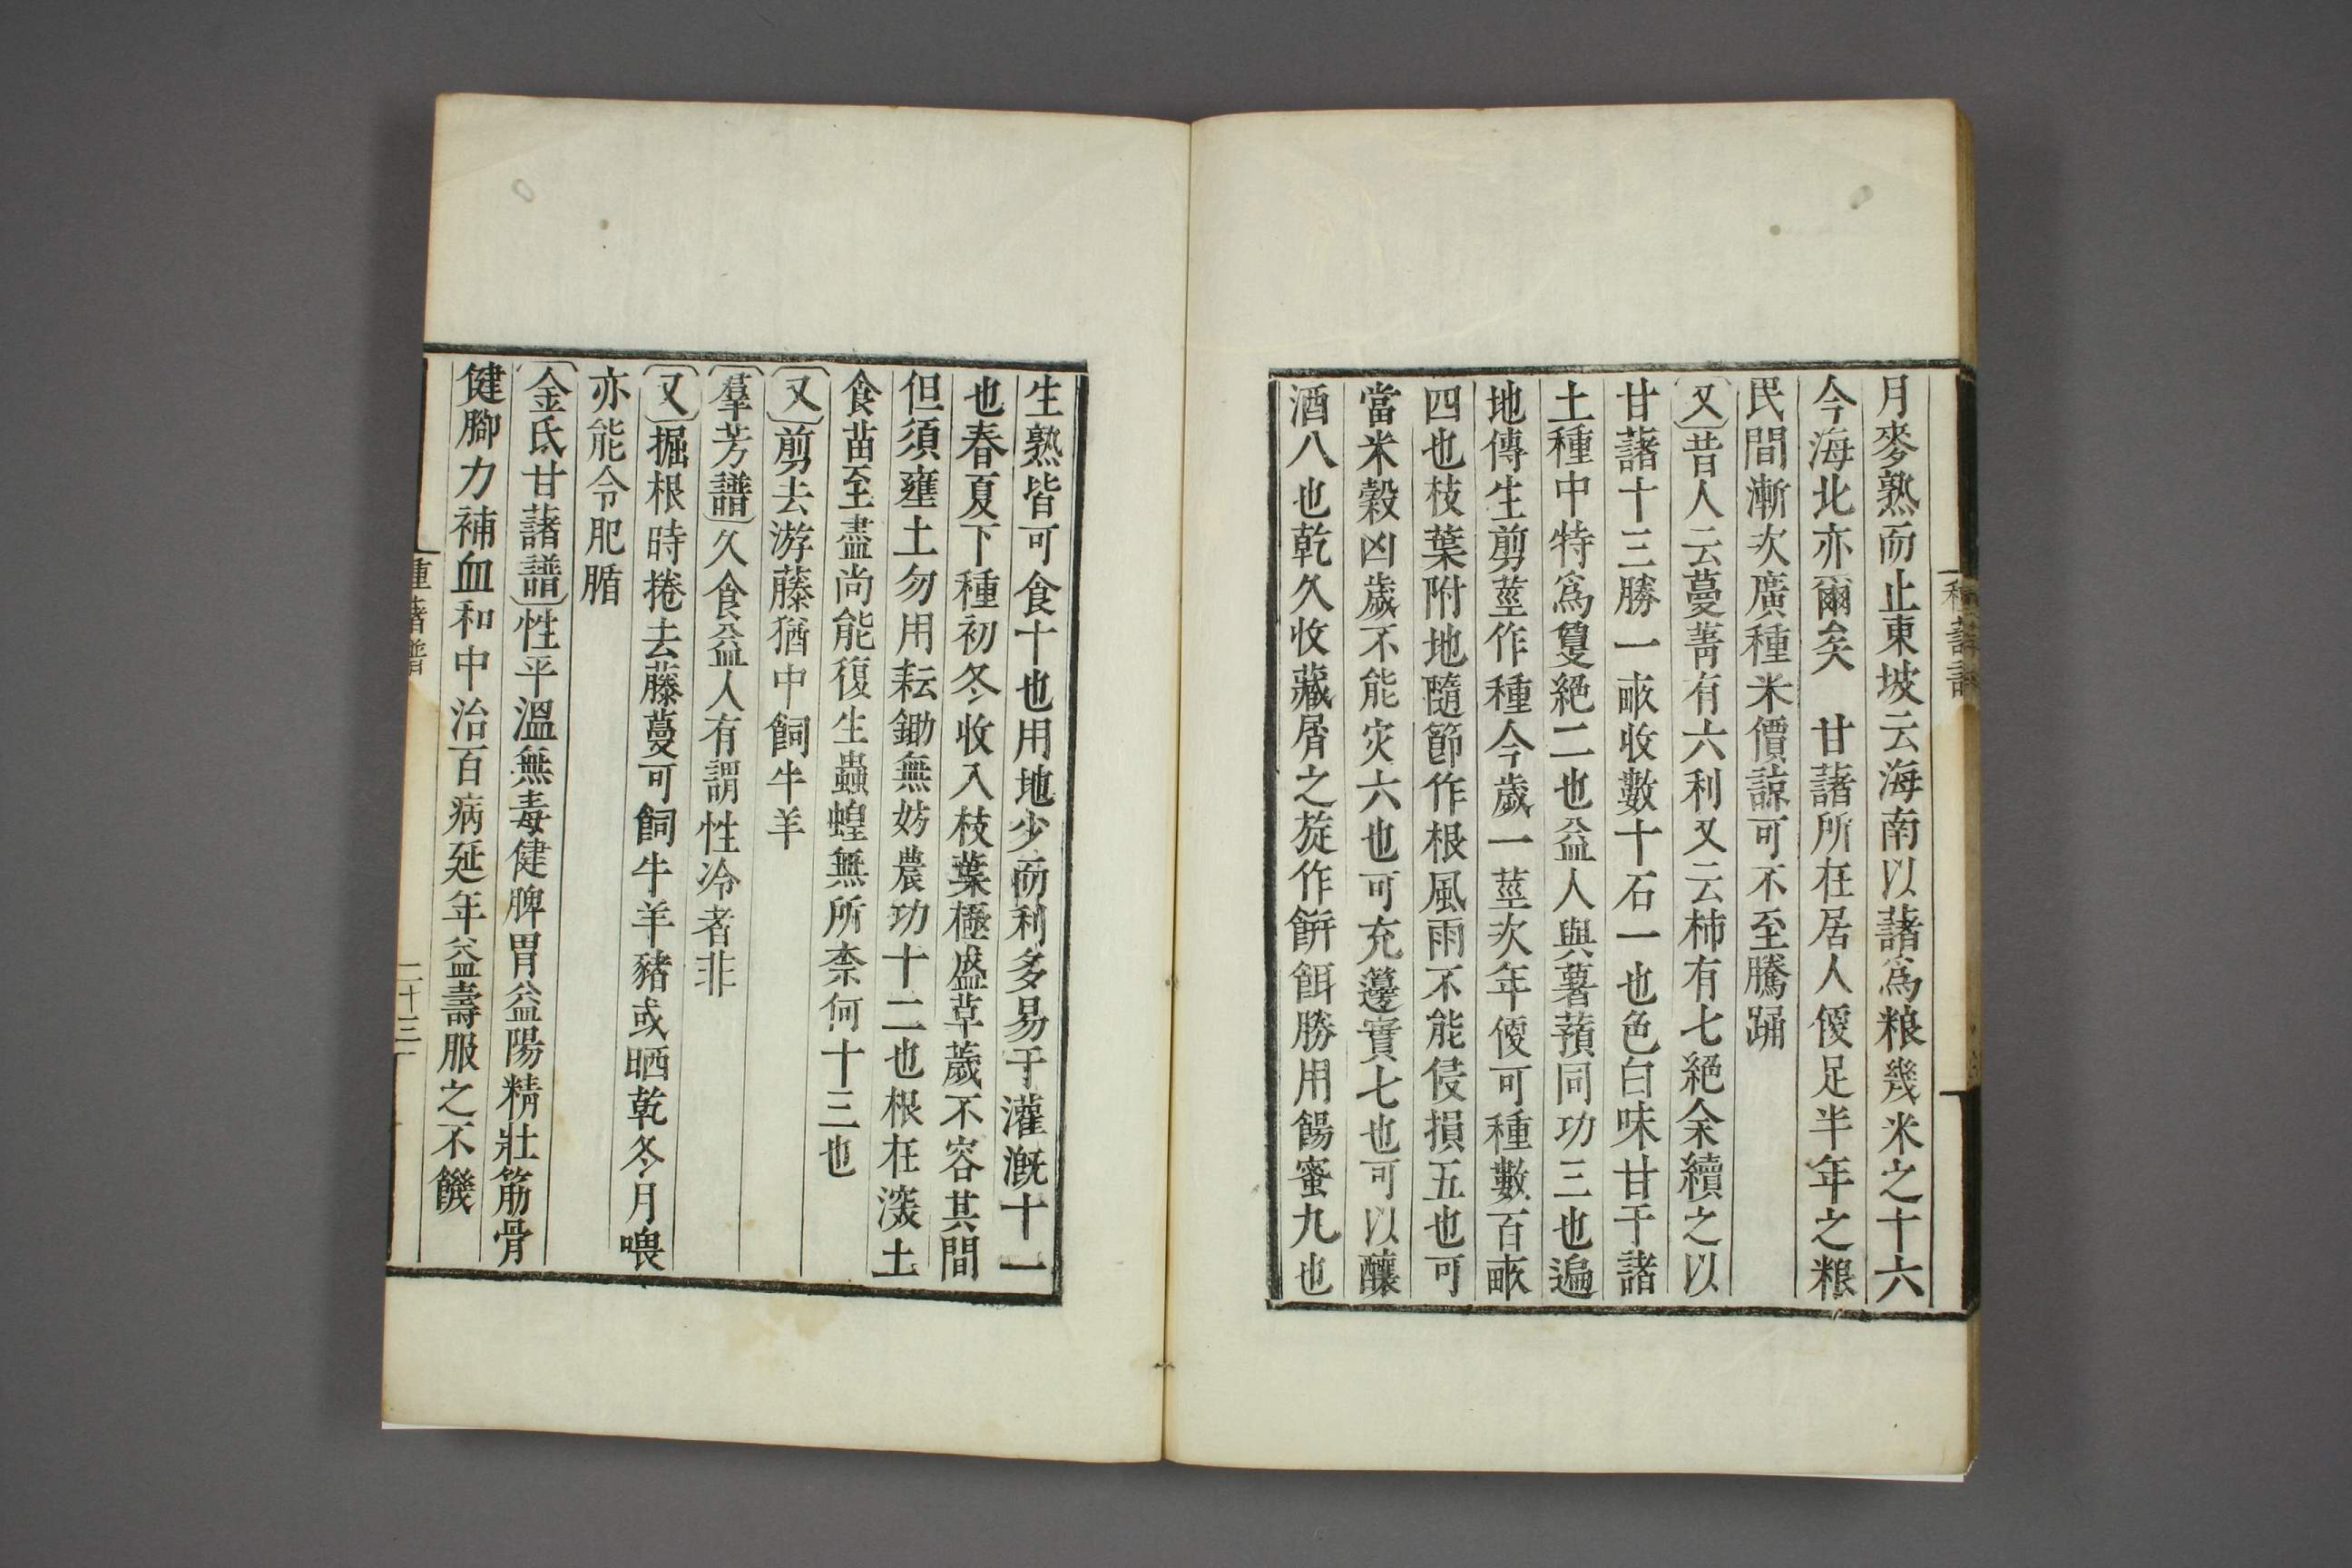 月麥熟而止東坡云海南以藷爲粮幾米之十六
今海北亦爾矣　甘藷所在居人僾足半年之粮
民間漸次廣種米價諒可不至騰踊
〔又〕昔人云蔓菁有六利又云柿有七絕余續之以
甘藷十三勝一畞收數十石一也色白味甘于諸
土種中特爲夐絕二也益人與薯蕷同功三也遍
地傳生剪莖作種今歲一莖次年僾可種數百畞
四也枝葉附地隨節作根風雨不能侵損五也可
當米穀凶歲不能灾六也可充籩實七也可以釀
酒八也乾久收藏屑之旋作餅餌勝用餳蜜九也
生熟皆可食十也用地少而利多易于灌漑十一
也春夏下種初冬收入枝葉極盛草薉不容其間
但須壅土勿用耘鋤無妨農功十二也根在深土
食苗至盡尚能復生蟲蝗無所柰何十三也
〔又〕剪去游藤猶中飼牛羊
〔羣芳譜〕久食益人有謂性冷者非
〔又〕掘根時捲去藤蔓可飼牛羊豬或晒乾冬月喂
亦能令肥腯
〔金氏甘藷譜〕性平溫無毒健脾胃益陽精壯筋骨
健腳力補血和中治百病延年益壽服之不饑
二十三